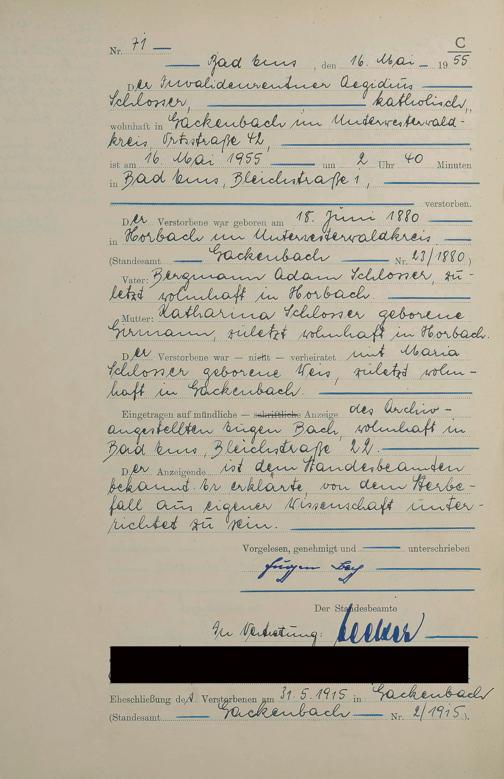 C
Nr. 71 —
Bad Ems, den 16. Mai 1955
Der Invalidenrentner Aegidius
Schlosser, katholisch,
wohnhaft in Gackenbach im Unterwesterwald-
kreis, Ortsstraße 42,
ist am 16. Mai 1955 um 2 Uhr 40 Minuten
in Bad Ems, Bleichstraße 1,
verstorben.
Der Verstorbene war geboren am 18. Juni 1880
in Horbach im Unterwesterwaldkreis
(Standesamt Gackenbach Nr. 23/1880)
Vater: Bergmann Adam Schlosser, zu-
letzt wohnhaft in Horbach.
Mutter: Katharina Schlosser geborene
Girmann, zuletzt wohnhaft in Horbach.
Der Verstorbene war — nicht — verheiratet mit Maria
Schlosser geborene Weis, zuletzt wohn-
haft in Gackenbach.
Eingetragen auf mündliche — schriftliche Anzeige des Archiv-
angestellten Eugen Bach, wohnhaft in
Bad Ems, Bleichstraße 22.
Der Anzeigende ist dem Standesbeamten
bekannt. Er erklärte, von dem Sterbe-
fall aus eigener Wissenschaft unter-
richtet zu sein.
Vorgelesen, genehmigt und — unterschrieben
Eugen
Der Standesbeamte
In Vertretung:
Eheschließung des Verstorbenen am 31.5.1915 in Gackenbach
(Standesamt Gackenbach Nr. 2/1915).